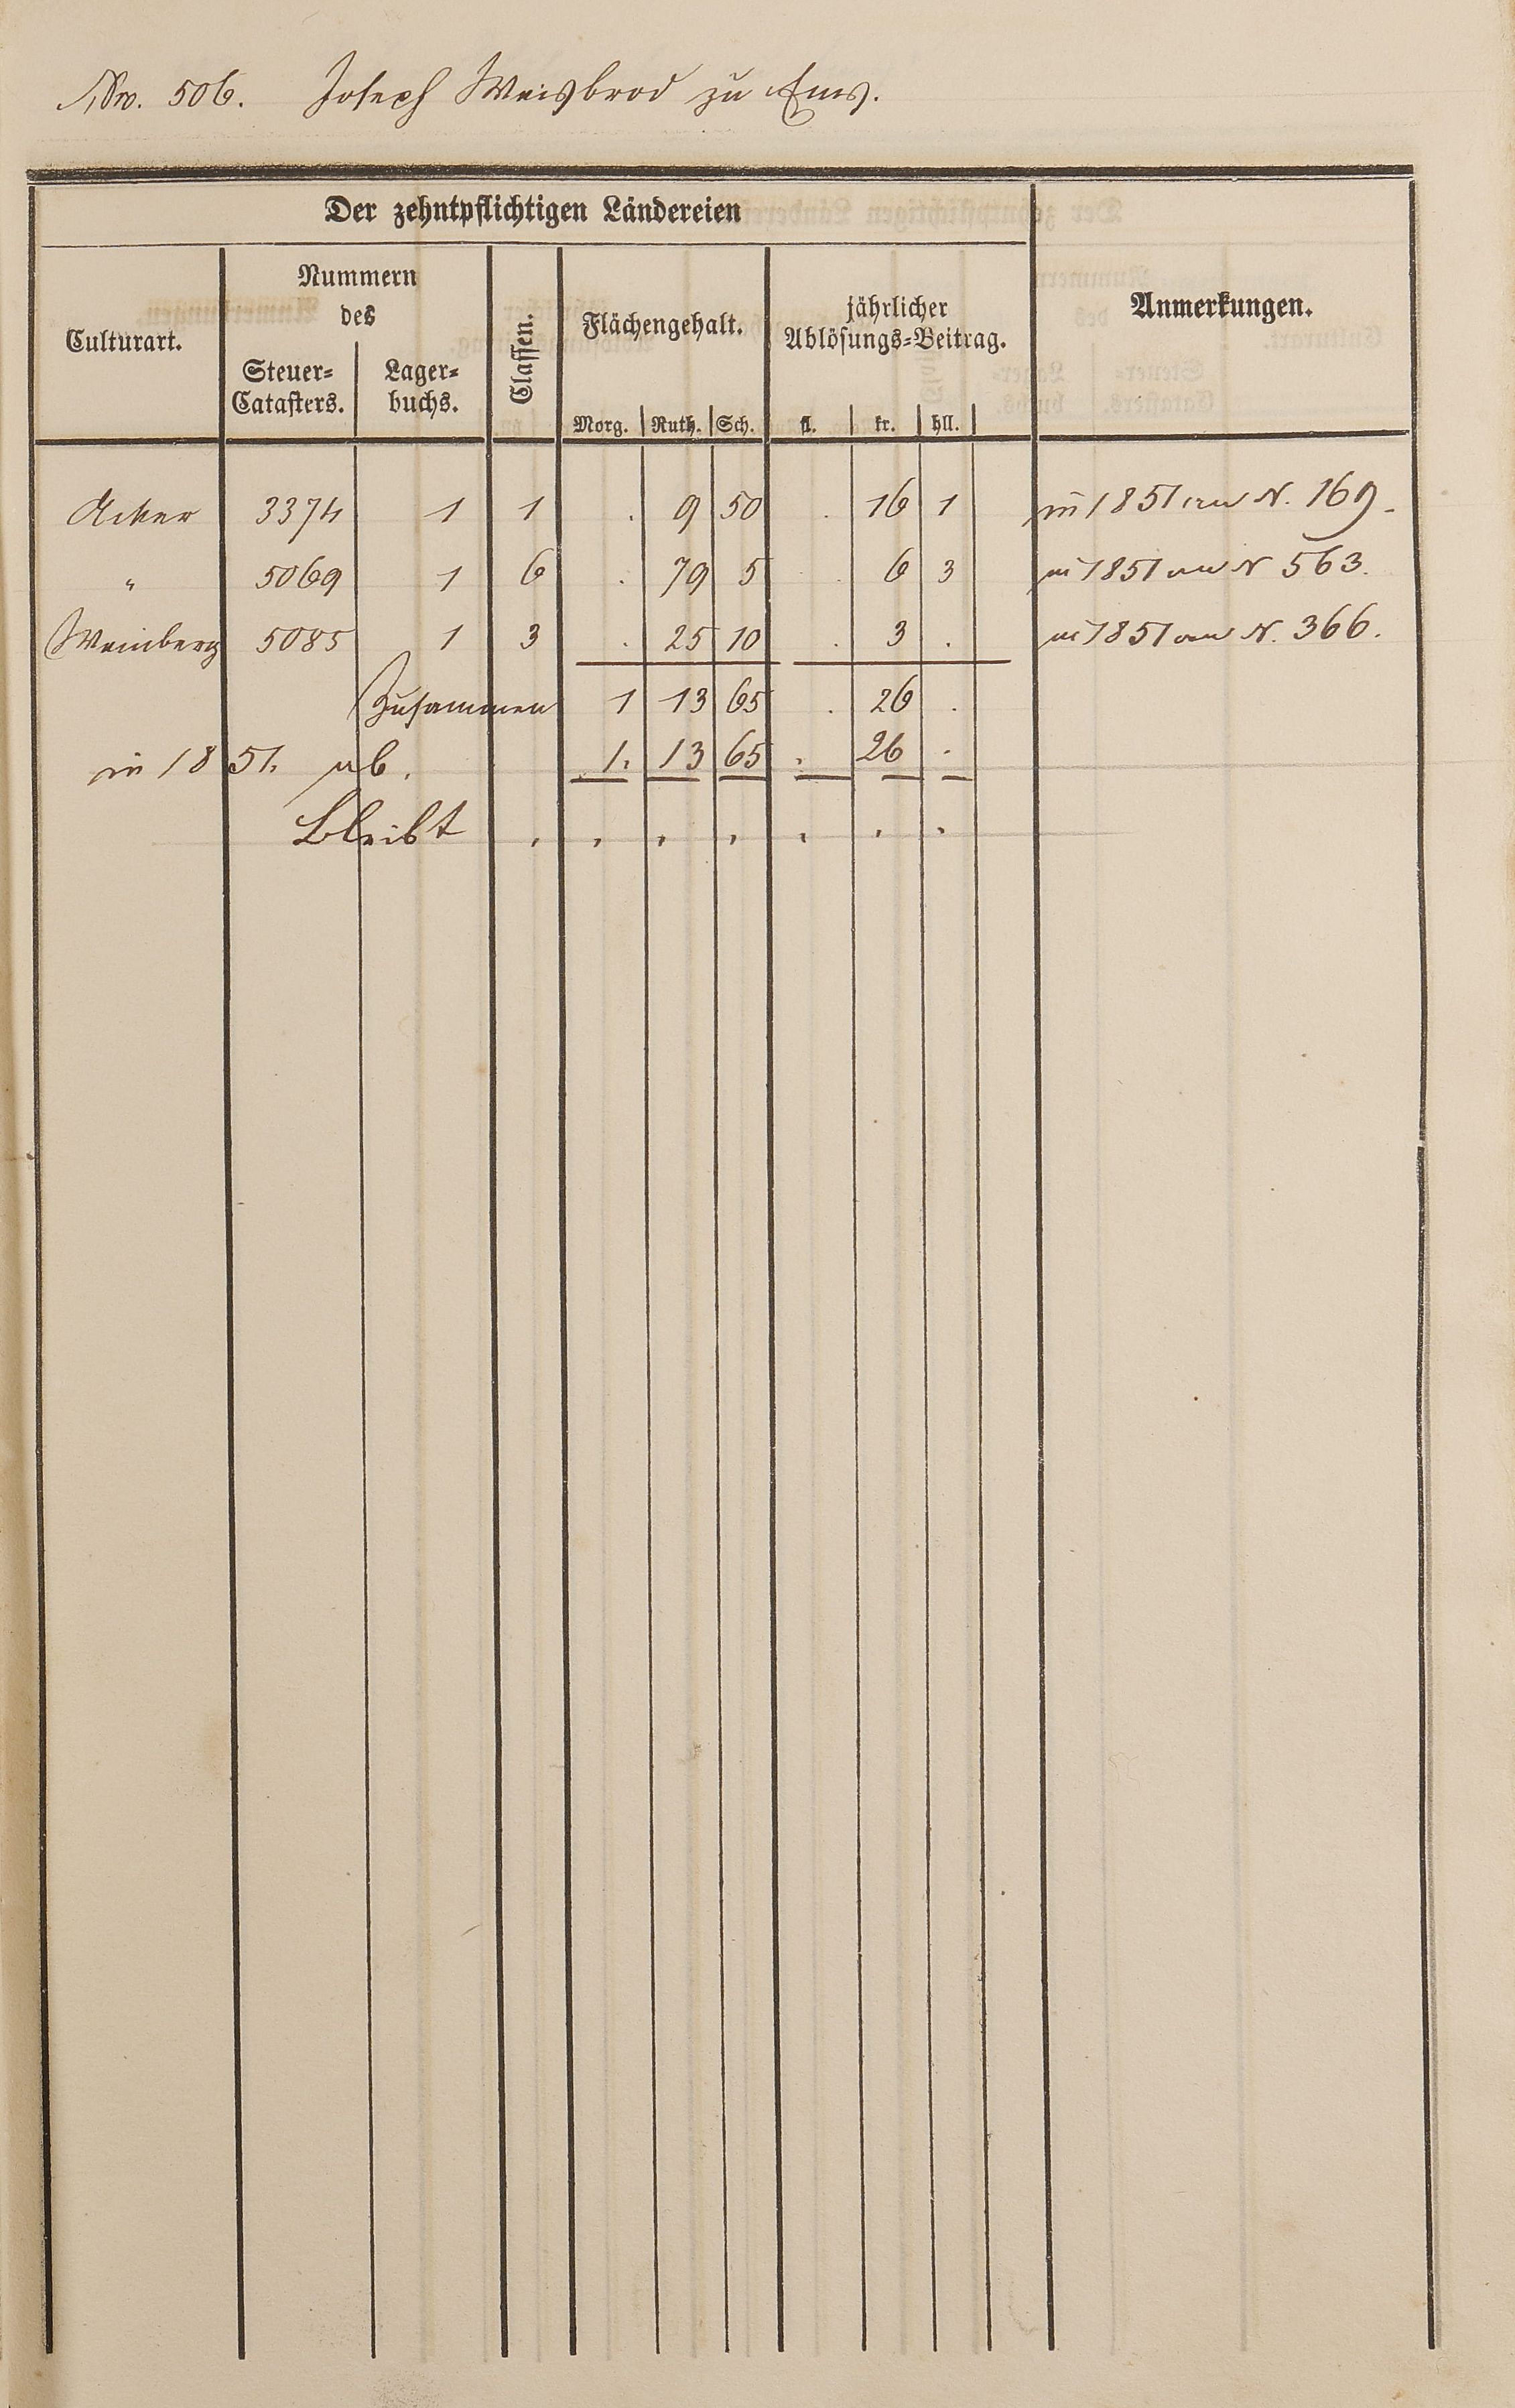 Nro. 506. Joseph Weisbrod zu Ems.
Der zehntpflichtigen Ländereien
Culturart.
Nummern
des
Steuer-
Catasters.
Lager-
buchs.
Classen.
Flächengehalt.
Morg. Ruth. Sch.
jährlicher
Ablösungs-Beitrag.
fl. kr. hll.
Anmerkungen.
Acker 3374 1 1 . 9 50 . 16 1 in 1851 an N. 169.
" 5069 1 6 . 79 5 . 6 3 in 1851 an N 563.
Weinberg 5085 1 3 . 25 10 . 3 . in 1851 an N. 366.
Zusammen 1 13 65 . 26 .
in 1851. ab. 1. 13 65 . 26 .
Bleibt . . . . . . .